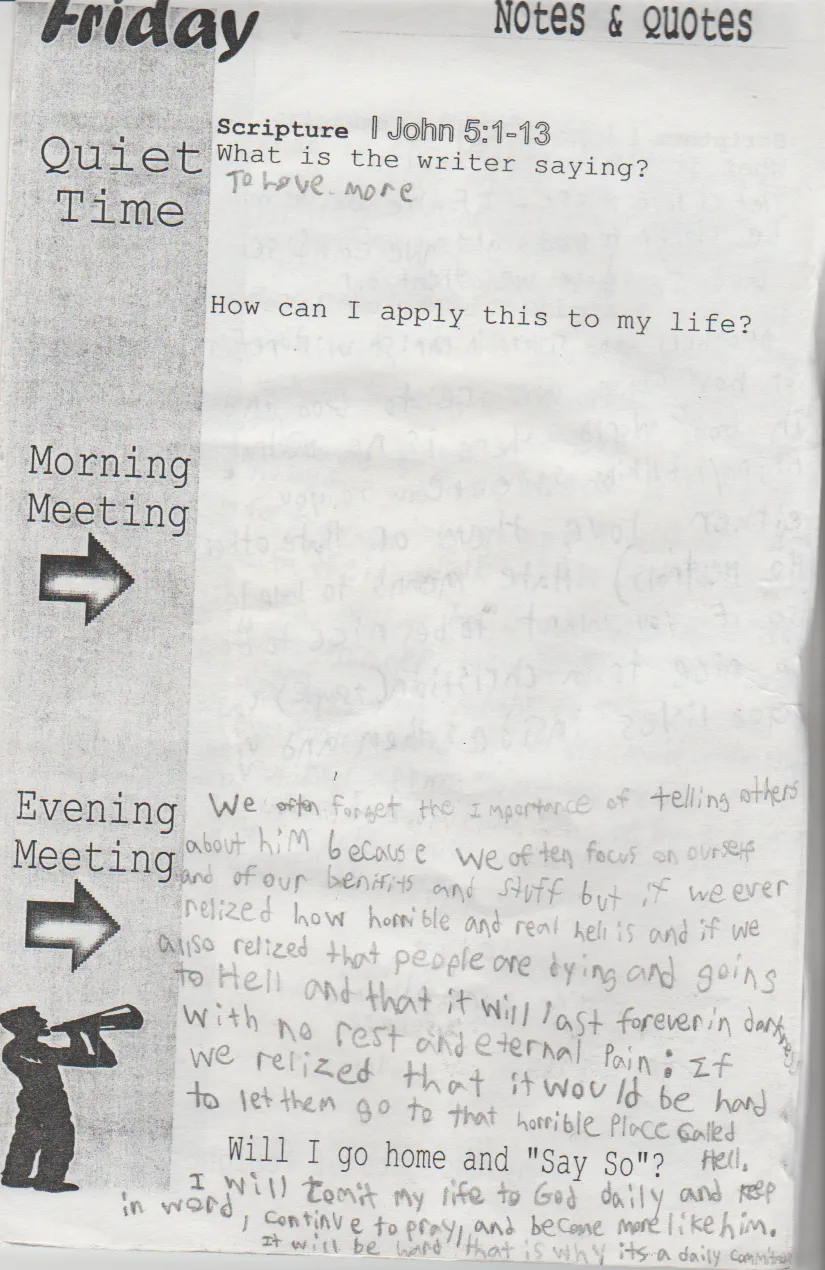 Friday
Notes & Quotes
Quiet
Time
Scripture I John 5:1-13
What is the writer saying?
To Love more
How can I apply this to my life?
Morning
Meeting
Evening
Meeting
We often forget the Importance of telling others
about him because we often focus on ourself
and of our benifits and stuff but if we ever
relized how horrible and real hell is and if we
also relized that people are dying and going
to Hell and that it will last forever in darkness
with no rest and eternal Pain: If
we relized that it would be hard
to let them go to that horrible Place Called
Hell.
Will I go home and "Say So"?
I will Comit my life to God daily and keep
in word, continue to pray, and become more like him.
It will be hard that is why its a daily